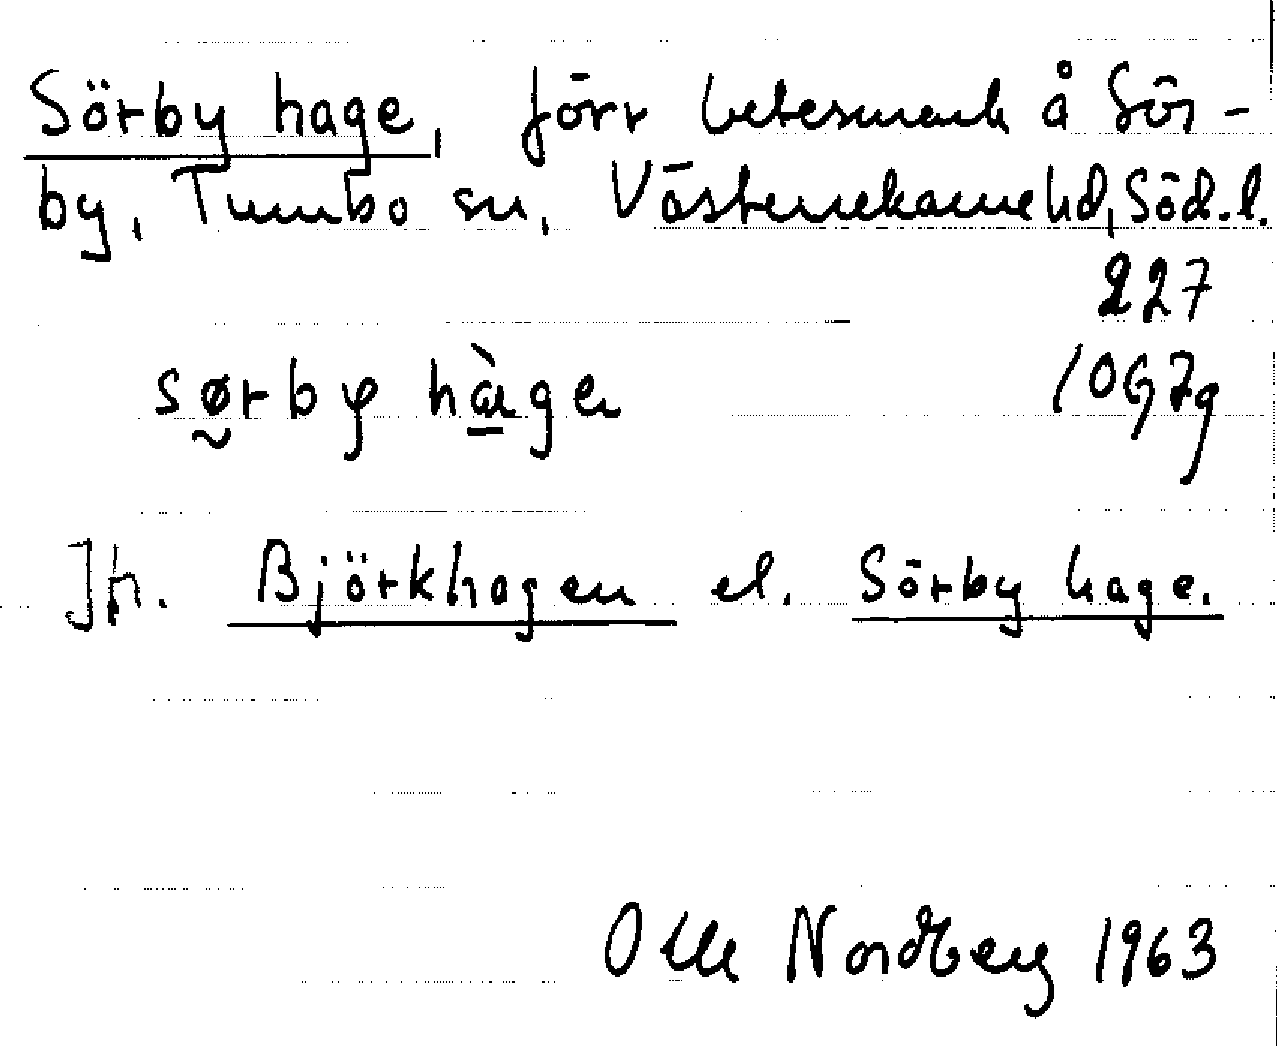 Sörby hage, förr betesmark å Sör-
by, Tumbo sn, Västerrekarne hd, Söd. l.
227
10G7g
Jfr. Björkhagen el. Sörby hage.
Olle Nordberg 1963